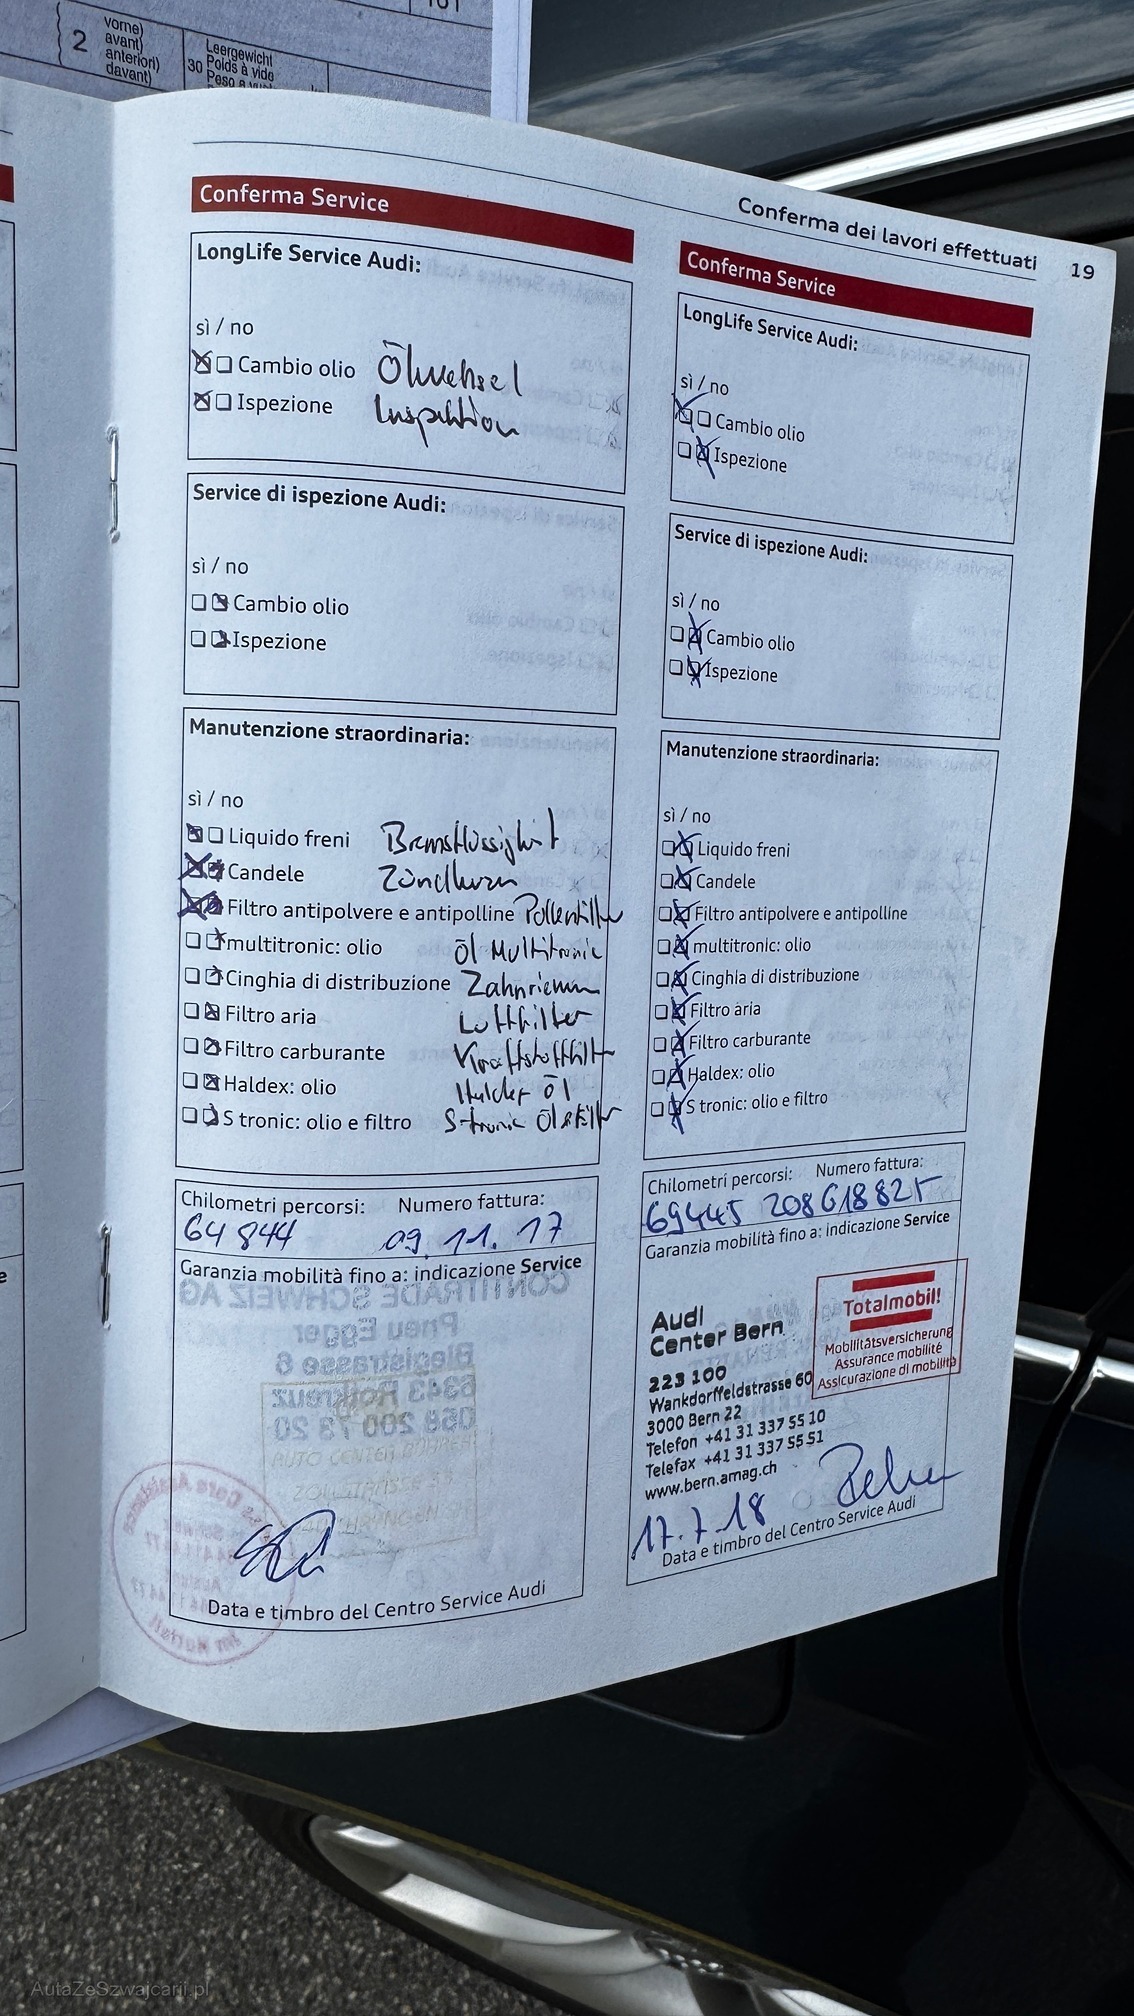 101
2
vorne)
avant)
anteriori)
davant)
30
Leergewicht
Poids à vide
Peso a
Conferma dei lavori effettuati 19
Conferma Service
LongLife Service Audi:
sì / no
Cambio olio Ölwechsel
Ispezione Inspektion
Service di ispezione Audi:
sì / no
Cambio olio
Ispezione
Manutenzione straordinaria:
sì / no
Liquido freni Bremsflüssigkeit
Candele Zündkerzen
Filtro antipolvere e antipolline Pollenfilter
multitronic: olio Öl Multitronic
Cinghia di distribuzione Zahnriemen
Filtro aria Luftfilter
Filtro carburante Kraftstofffilter
Haldex: olio Haldex Öl
S tronic: olio e filtro S-tronic Öl & Filter
Chilometri percorsi: Numero fattura:
64 844 09.11.17
Garanzia mobilità fino a: indicazione Service
CONTITRADE SCHWEIZ AG
Pneu Egger
Blegistrasse 6
6343 Rotkreuz
058 200 73 20
AUTO CENTER
Data e timbro del Centro Service Audi
Conferma Service
LongLife Service Audi:
sì / no
Cambio olio
Ispezione
Service di ispezione Audi:
sì / no
Cambio olio
Ispezione
Manutenzione straordinaria:
sì / no
Liquido freni
Candele
Filtro antipolvere e antipolline
multitronic: olio
Cinghia di distribuzione
Filtro aria
Filtro carburante
Haldex: olio
S tronic: olio e filtro
Chilometri percorsi: Numero fattura:
69445 208618825
Garanzia mobilità fino a: indicazione Service
Audi
Center Bern
223 100
Wankdorffeldstrasse 60
3000 Bern 22
Telefon +41 31 337 55 10
Telefax +41 31 337 55 51
www.bern.amag.ch
Totalmobil!
Mobilitätsversicherung
Assurance mobilité
Assicurazione di mobilità
17.7.18
Data e timbro del Centro Service Audi
AutaZeSzwajcarii.pl